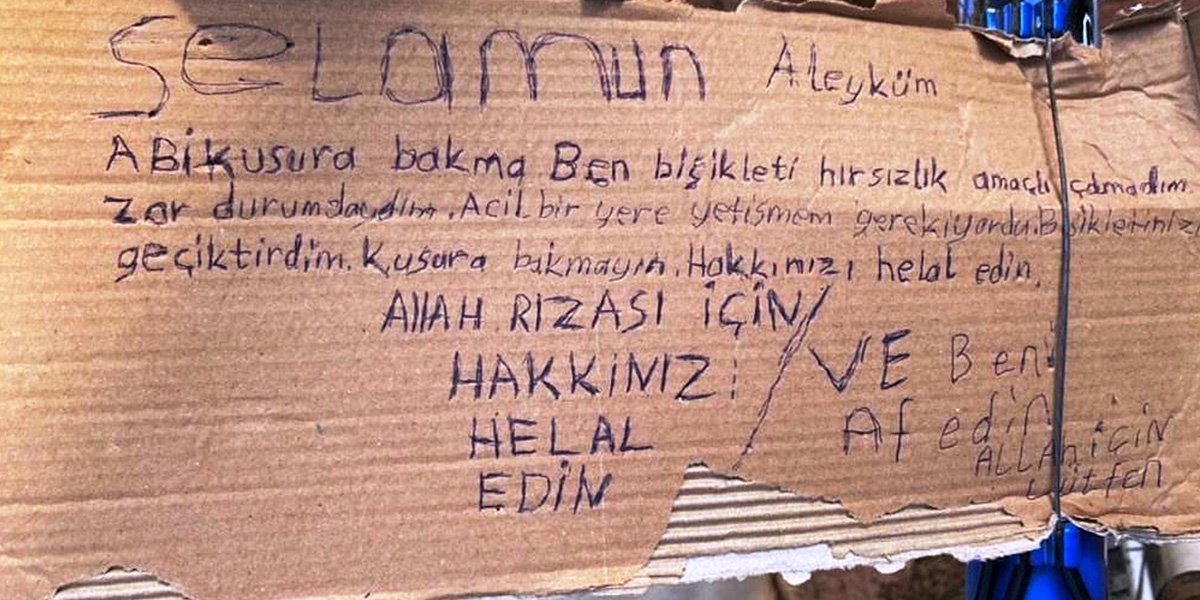 Selamun Aleyküm
ABi kusura bakma Ben bişikleti hırsızlık amaçlı çalmadım
Zor durumdaydım. Acil bir yere yetişmem gerekiyordu. Bisikletinizi
geçiktirdim. Kusura bakmayın. Hakkınızı helal edin.
AllAH RIZASI İÇİN
HAKKINIZI
HELAL
EDİN
VE Beni
Af edin
ALLAh için
Lütfen